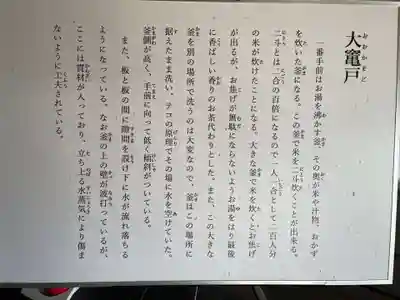 大竃戸
一番手前はお湯を沸かす釜、その奥が米や汁物、おかず
を炊いた釜になる。この釜で米を二斗炊くことが出来る。
二斗とは二合の百倍になるので一人一合として二百人分
の米が炊けたことになる。大きな釜で米を炊くとお焦げ
が出るが、お焦げが無駄にならないようお湯をはり最後
に香ばしい香りのお茶代わりとした。また、この大きな
釜を別の場所で洗うのは大変なので、釜はこの場所に
据えたまま洗い、テコの原理でその場に水を空けていた。
釜側が高く、手前に向って低く傾斜がついている。
また、板と板の間に隙間を設け下に水が流れ落ちる
ようになっている。なお釜の上の壁が波打っているが、
ここには貫材が入っており、立ち上る水蒸気により傷ま
ないように工夫されている。